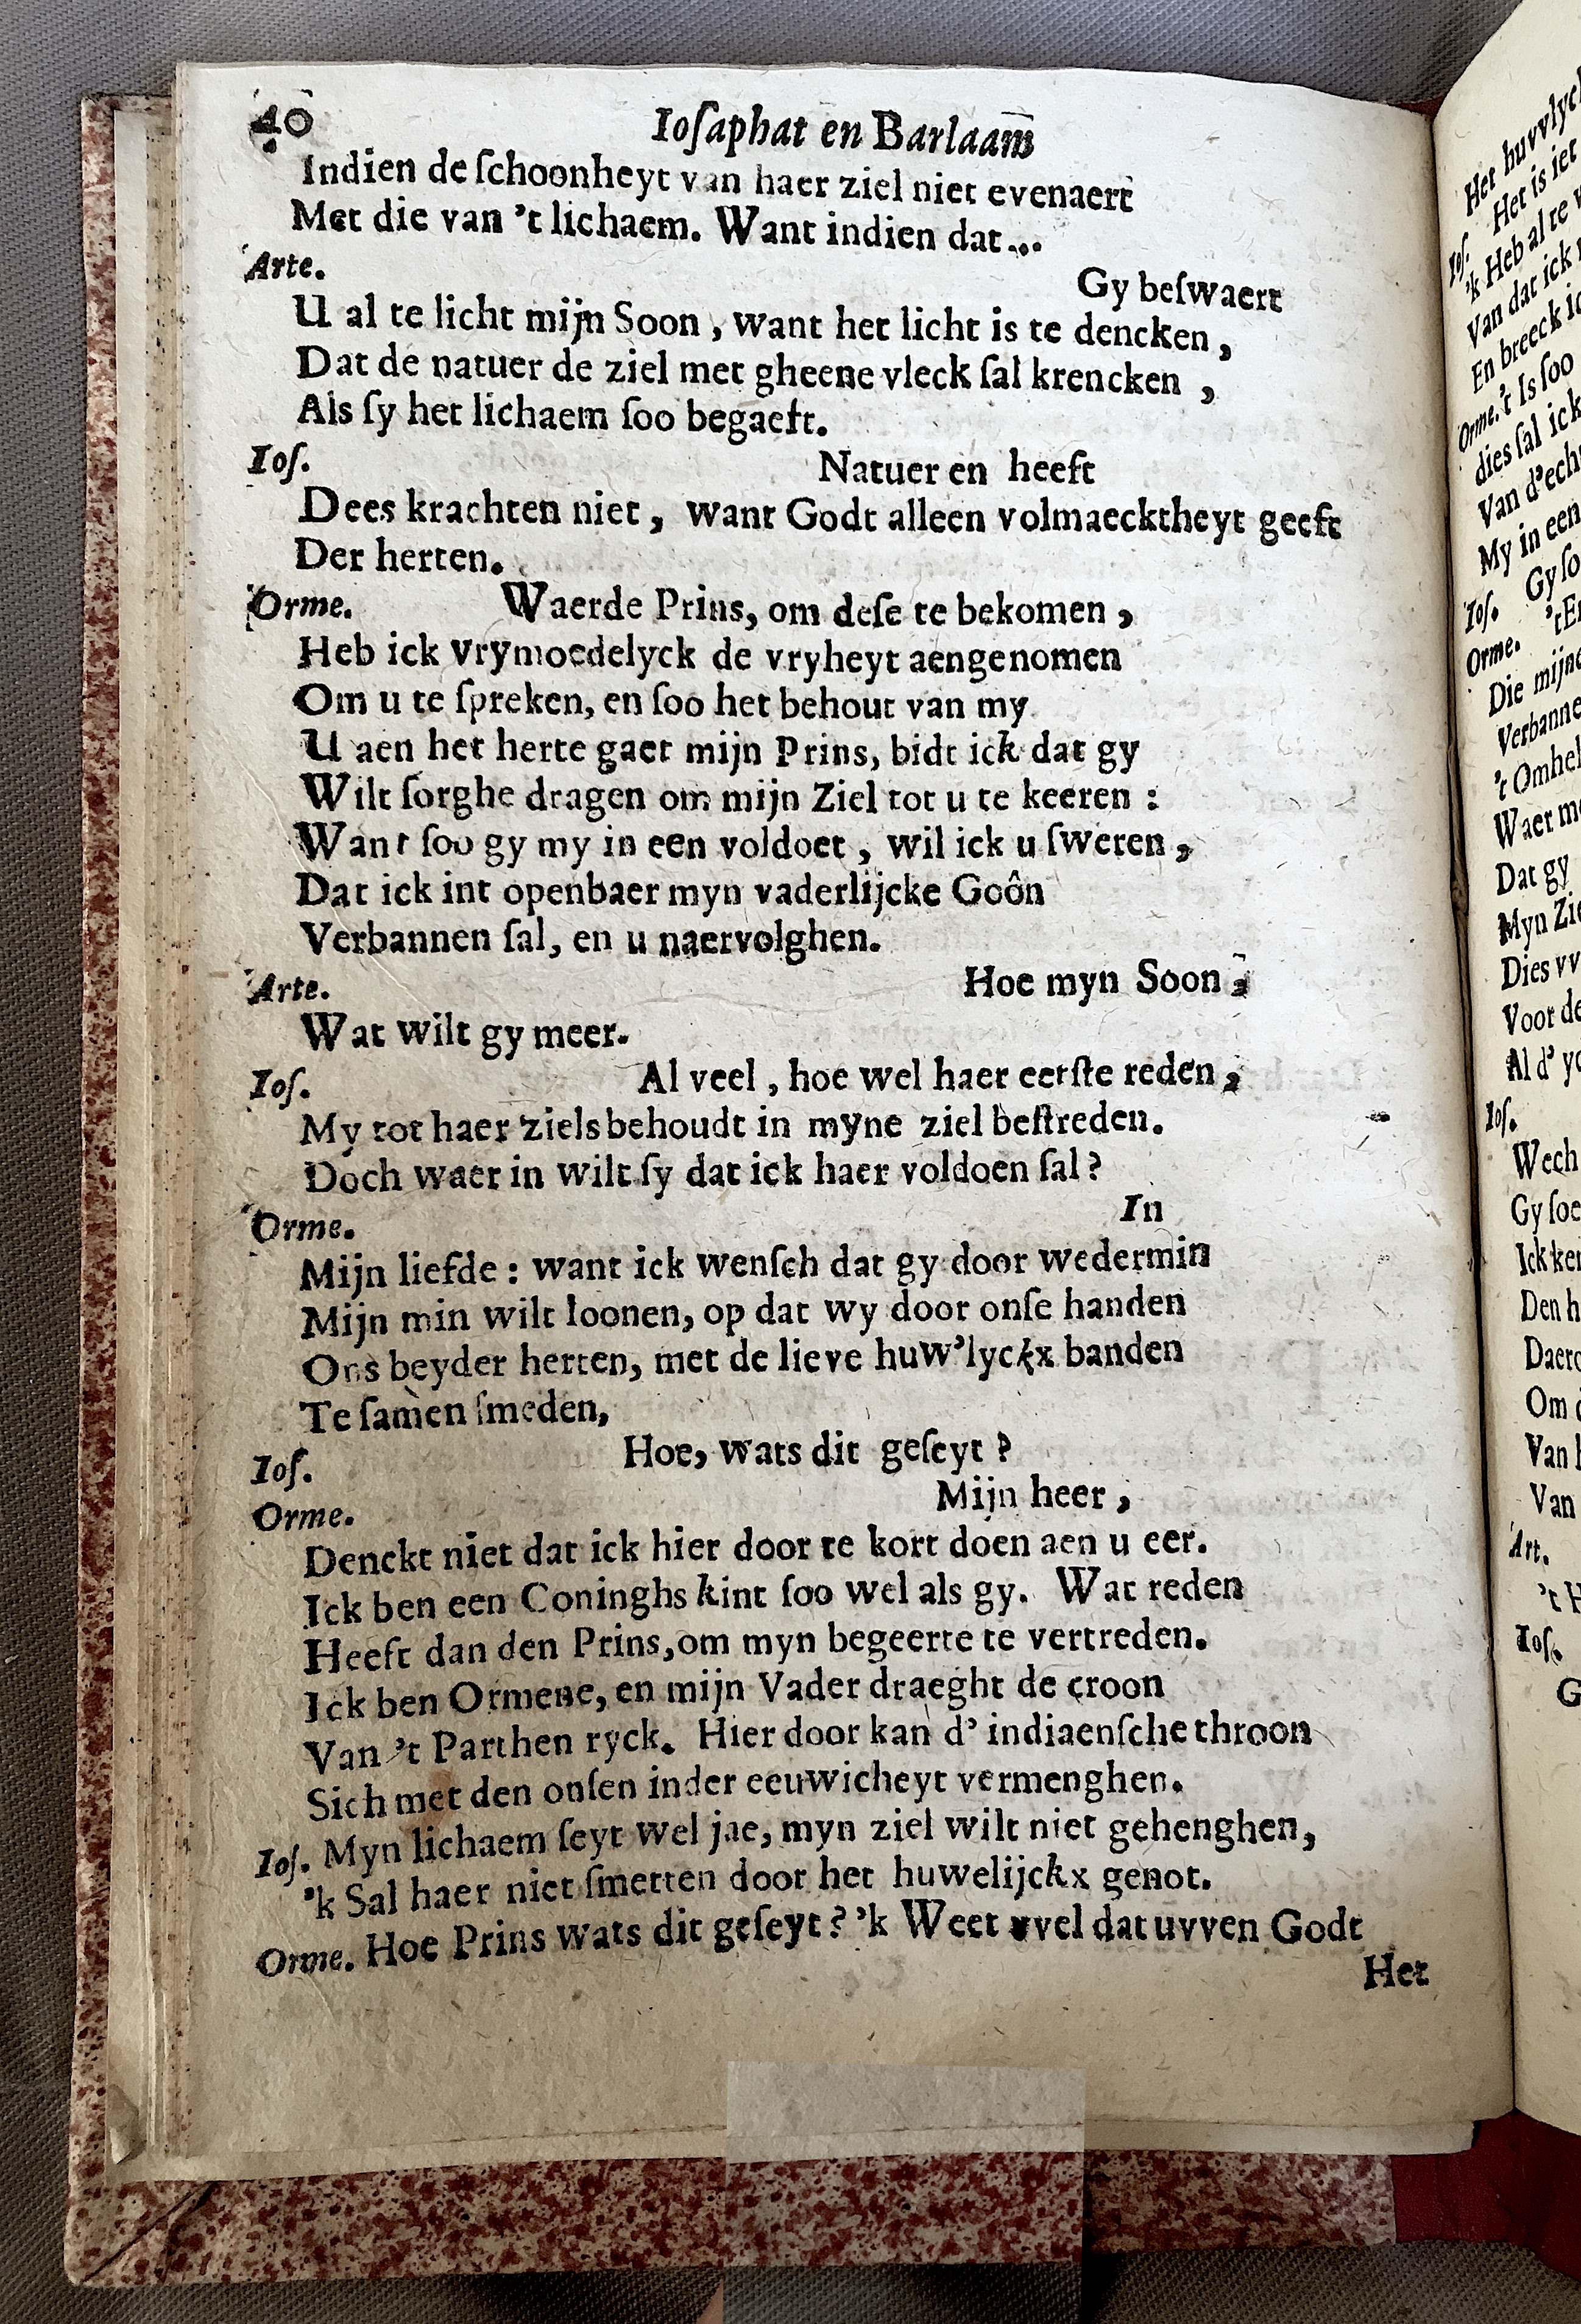 40 Ioſaphat en Barlaam
Indien de ſchoonheyt van haer ziel niet evenaert
Met die van 't lichaem. Want indien dat...
Arte. Gy beſwaert
U al te licht mijn Soon, want het licht is te dencken,
Dat de natuer de ziel met gheene vleck ſal krencken,
Als ſy het lichaem ſoo begaeft.
Ioſ. Natuer en heeft
Dees krachten niet, want Godt alleen volmaecktheyt geeft
Der herten.
Orme. Waerde Prins, om deſe te bekomen,
Heb ick vrymoedelyck de vryheyt aengenomen
Om u te ſpreken, en ſoo het behout van my
U aen het herte gaet mijn Prins, bidt ick dat gy
Wilt ſorghe dragen om mijn Ziel tot u te keeren:
Want ſoo gy my in een voldoet, wil ick u ſweren,
Dat ick int openbaer myn vaderlijcke Goôn
Verbannen ſal, en u naervolghen.
Arte. Hoe myn Soon,
Wat wilt gy meer.
Ioſ. Al veel, hoe wel haer eerſte reden,
My tot haer ziels behoudt in myne ziel beſtreden.
Doch waer in wilt ſy dat ick haer voldoen ſal?
Orme. In
Mijn liefde: want ick wenſch dat gy door wedermin
Mijn min wilt loonen, op dat wy door onſe handen
Ons beyder herten, met de lieve huw'lyckx banden
Te ſamen ſmeden,
Ioſ. Hoe, wats dit geſeyt?
Orme. Mijn heer,
Denckt niet dat ick hier door te kort doen aen u eer.
Ick ben een Coninghs kint ſoo wel als gy. Wat reden
Heeft dan den Prins, om myn begeerte te vertreden.
Ick ben Ormene, en mijn Vader draeght de croon
Van 't Parthen ryck. Hier door kan d' indiaenſche throon
Sich met den onſen inder eeuwicheyt vermenghen.
Ioſ. Myn lichaem ſeyt wel jae, myn ziel wilt niet gehenghen,
'k Sal haer niet ſmetten door het huwelijckx genot.
Orme. Hoe Prins wats dit geſeyt? 'k Weet vvel dat uvven Godt
Het
Het huvvlyck
Het is iet
Ioſ. 'k Heb al te
Van dat ick
En breeck
Orme. 't Is ſoo
dies ſal ick
Van
My in een
Ioſ. Gy
Orme.
Die
Dat gy
Myn
Dies
Voor
Al d'
Ioſ.
Gy
Ick
Den
Om
Van
Van
Art.
Ioſ.